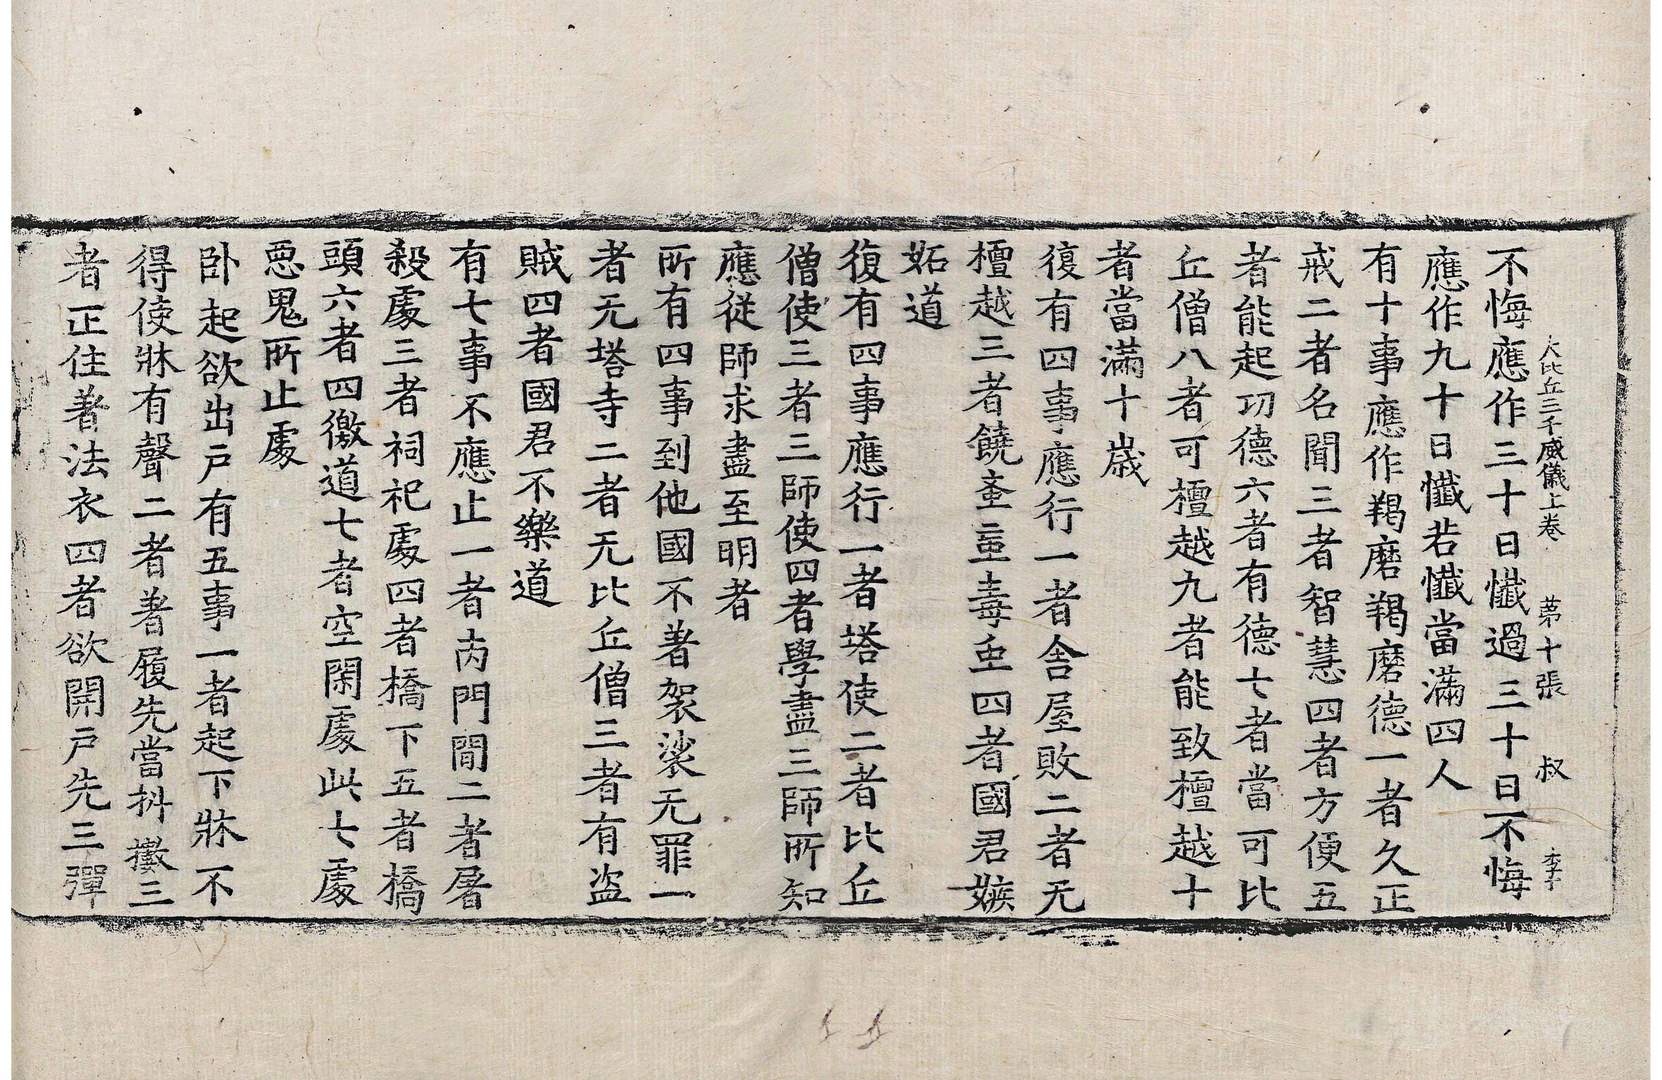 大比丘三千威儀上卷 苐十張 叔 李子
不悔應作三十日懺過三十日不悔
應作九十日懺若懺當滿四人
有十事應作羯磨羯磨德一者久正
戒二者名聞三者智慧四者方便五
者能起功德六者有德七者當可比
丘僧八者可檀越九者能致檀越十
者當滿十歲
復有四事應行一者舍屋敗二者无
檀越三者饒蚤䖝毒䖝四者國君嫉
妬道
復有四事應行一者塔使二者比丘
僧使三者三師使四者學盡三師所知
應從師求盡至明者
所有四事到他國不著袈裟无罪一
者无塔寺二者无比丘僧三者有盜
賊四者國君不樂道
有七事不應止一者丙門間二者屠
殺處三者祠祀處四者橋下五者橋
頭六者四徼道七者空閑處此七處
惡鬼所止處
卧起欲出戶有五事一者起下牀不
得使牀有聲二者著履先當抖擻三
者正住著法衣四者欲開戶先三彈